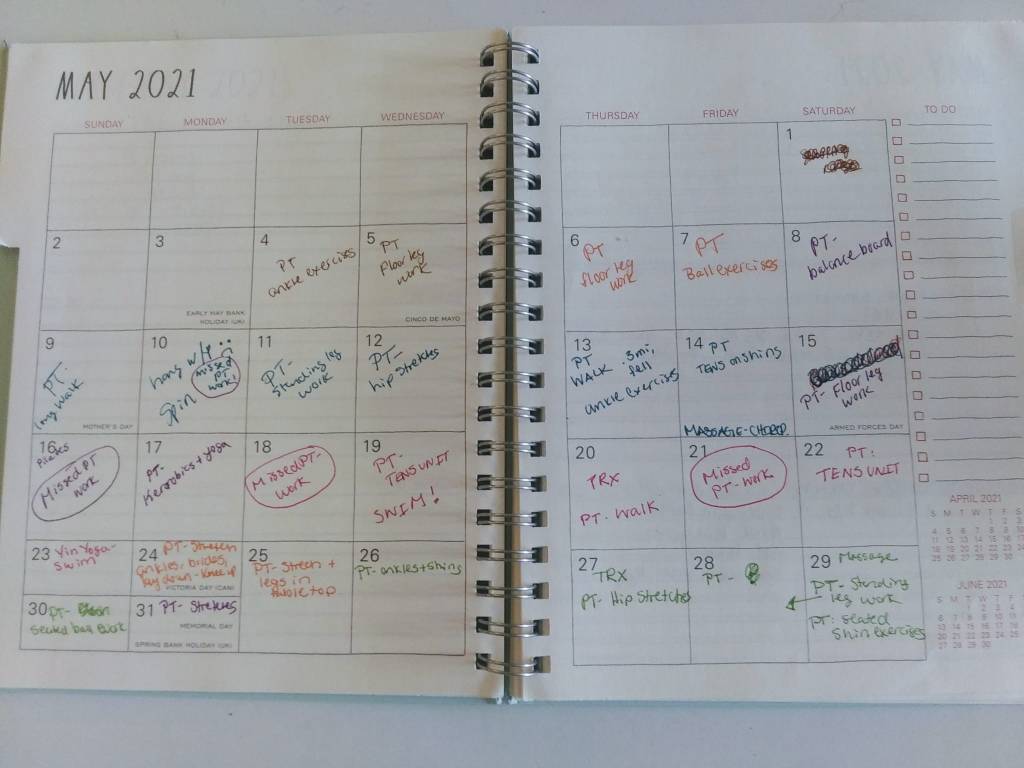 MAY 2021
SUNDAY MONDAY TUESDAY WEDNESDAY THURSDAY FRIDAY SATURDAY TO DO
1
2
3
EARLY MAY BANK
HOLIDAY (UK)
4
PT
ankle exercises
5
PT
Floor leg
work
CINCO DE MAYO
6
PT
floor leg
work
7
PT
Ball exercises
8
PT-
balance board
9
PT-
long walk
MOTHER'S DAY
10
hang w/
missed
PT
work!
Spin
11
PT-
Standing leg
work
12
PT-
hip stretches
13
PT
WALK 3mi,
ankle exercises
14
PT
TENS on shins
MASSAGE-
15
PT- Floor leg
work
ARMED FORCES DAY
16
Pilates
Missed PT
work
17
PT-
Kerrobics + yoga
18
Missed PT-
work
19
PT-
TENS UNIT
SWIM!
20
TRX
PT- Walk
21
Missed
PT-work
22
PT:
TENS UNIT
23
Yin Yoga-
Swim
24
PT-
ankles,
VICTORIA DAY (CAN)
25
PT- +
legs in
table top
26
PT- ankles + shins
27
TRX
PT- Hip Stretches
28
PT-
29
Massage
PT- Standing
leg work
PT: seated
shin exercises
30
PT-
seated ball work
31
PT- Stretches
MEMORIAL DAY
SPRING BANK HOLIDAY (UK)
APRIL 2021
S M T W T F S
1 2 3
4 5 6 7 8 9 10
11 12 13 14 15 16 17
18 19 20 21 22 23 24
25 26 27 28 29 30
JUNE 2021
S M T W T F S
1 2 3 4 5
6 7 8 9 10 11 12
13 14 15 16 17 18 19
20 21 22 23 24 25 26
27 28 29 30